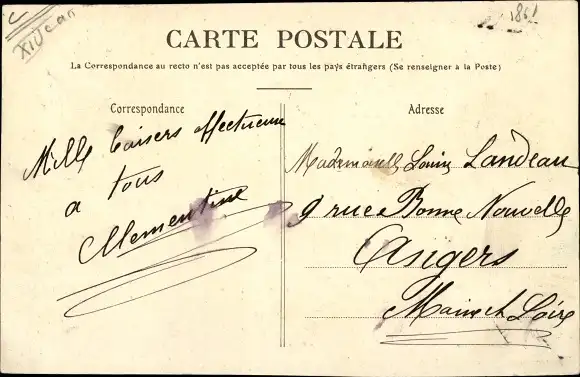 XIV Jean
1861
CARTE POSTALE
La Correspondance au recto n'est pas acceptée par tous les pays étrangers (Se renseigner à la Poste)
Correspondance
Mille baisers affectueux
a tous
Clementine
Adresse
Mademoiselle Louise Landeau
9 rue Bonne Nouvelle
Angers
Maine et Loire